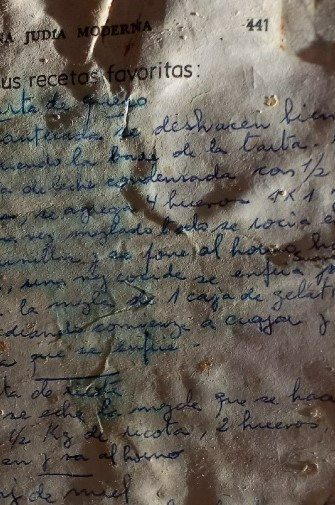 NA JUDIA MODERNA 441
us recetas favoritas:
de queso
se deshacen bien
la base de la tarta.
de leche condensada con 1/2
se agrega 4 huevos 1 x 1
vez mezclado todo se rocía
y se pone al horno
una vez cocido se enfría
la mezla de 1 caja de gelat
comienze a cuajar y
que se enfríe.
ta de ricota
se eche la mezcla que se hace
1/2 Kg de ricota, 2 huevos
en y va al horno
de miel